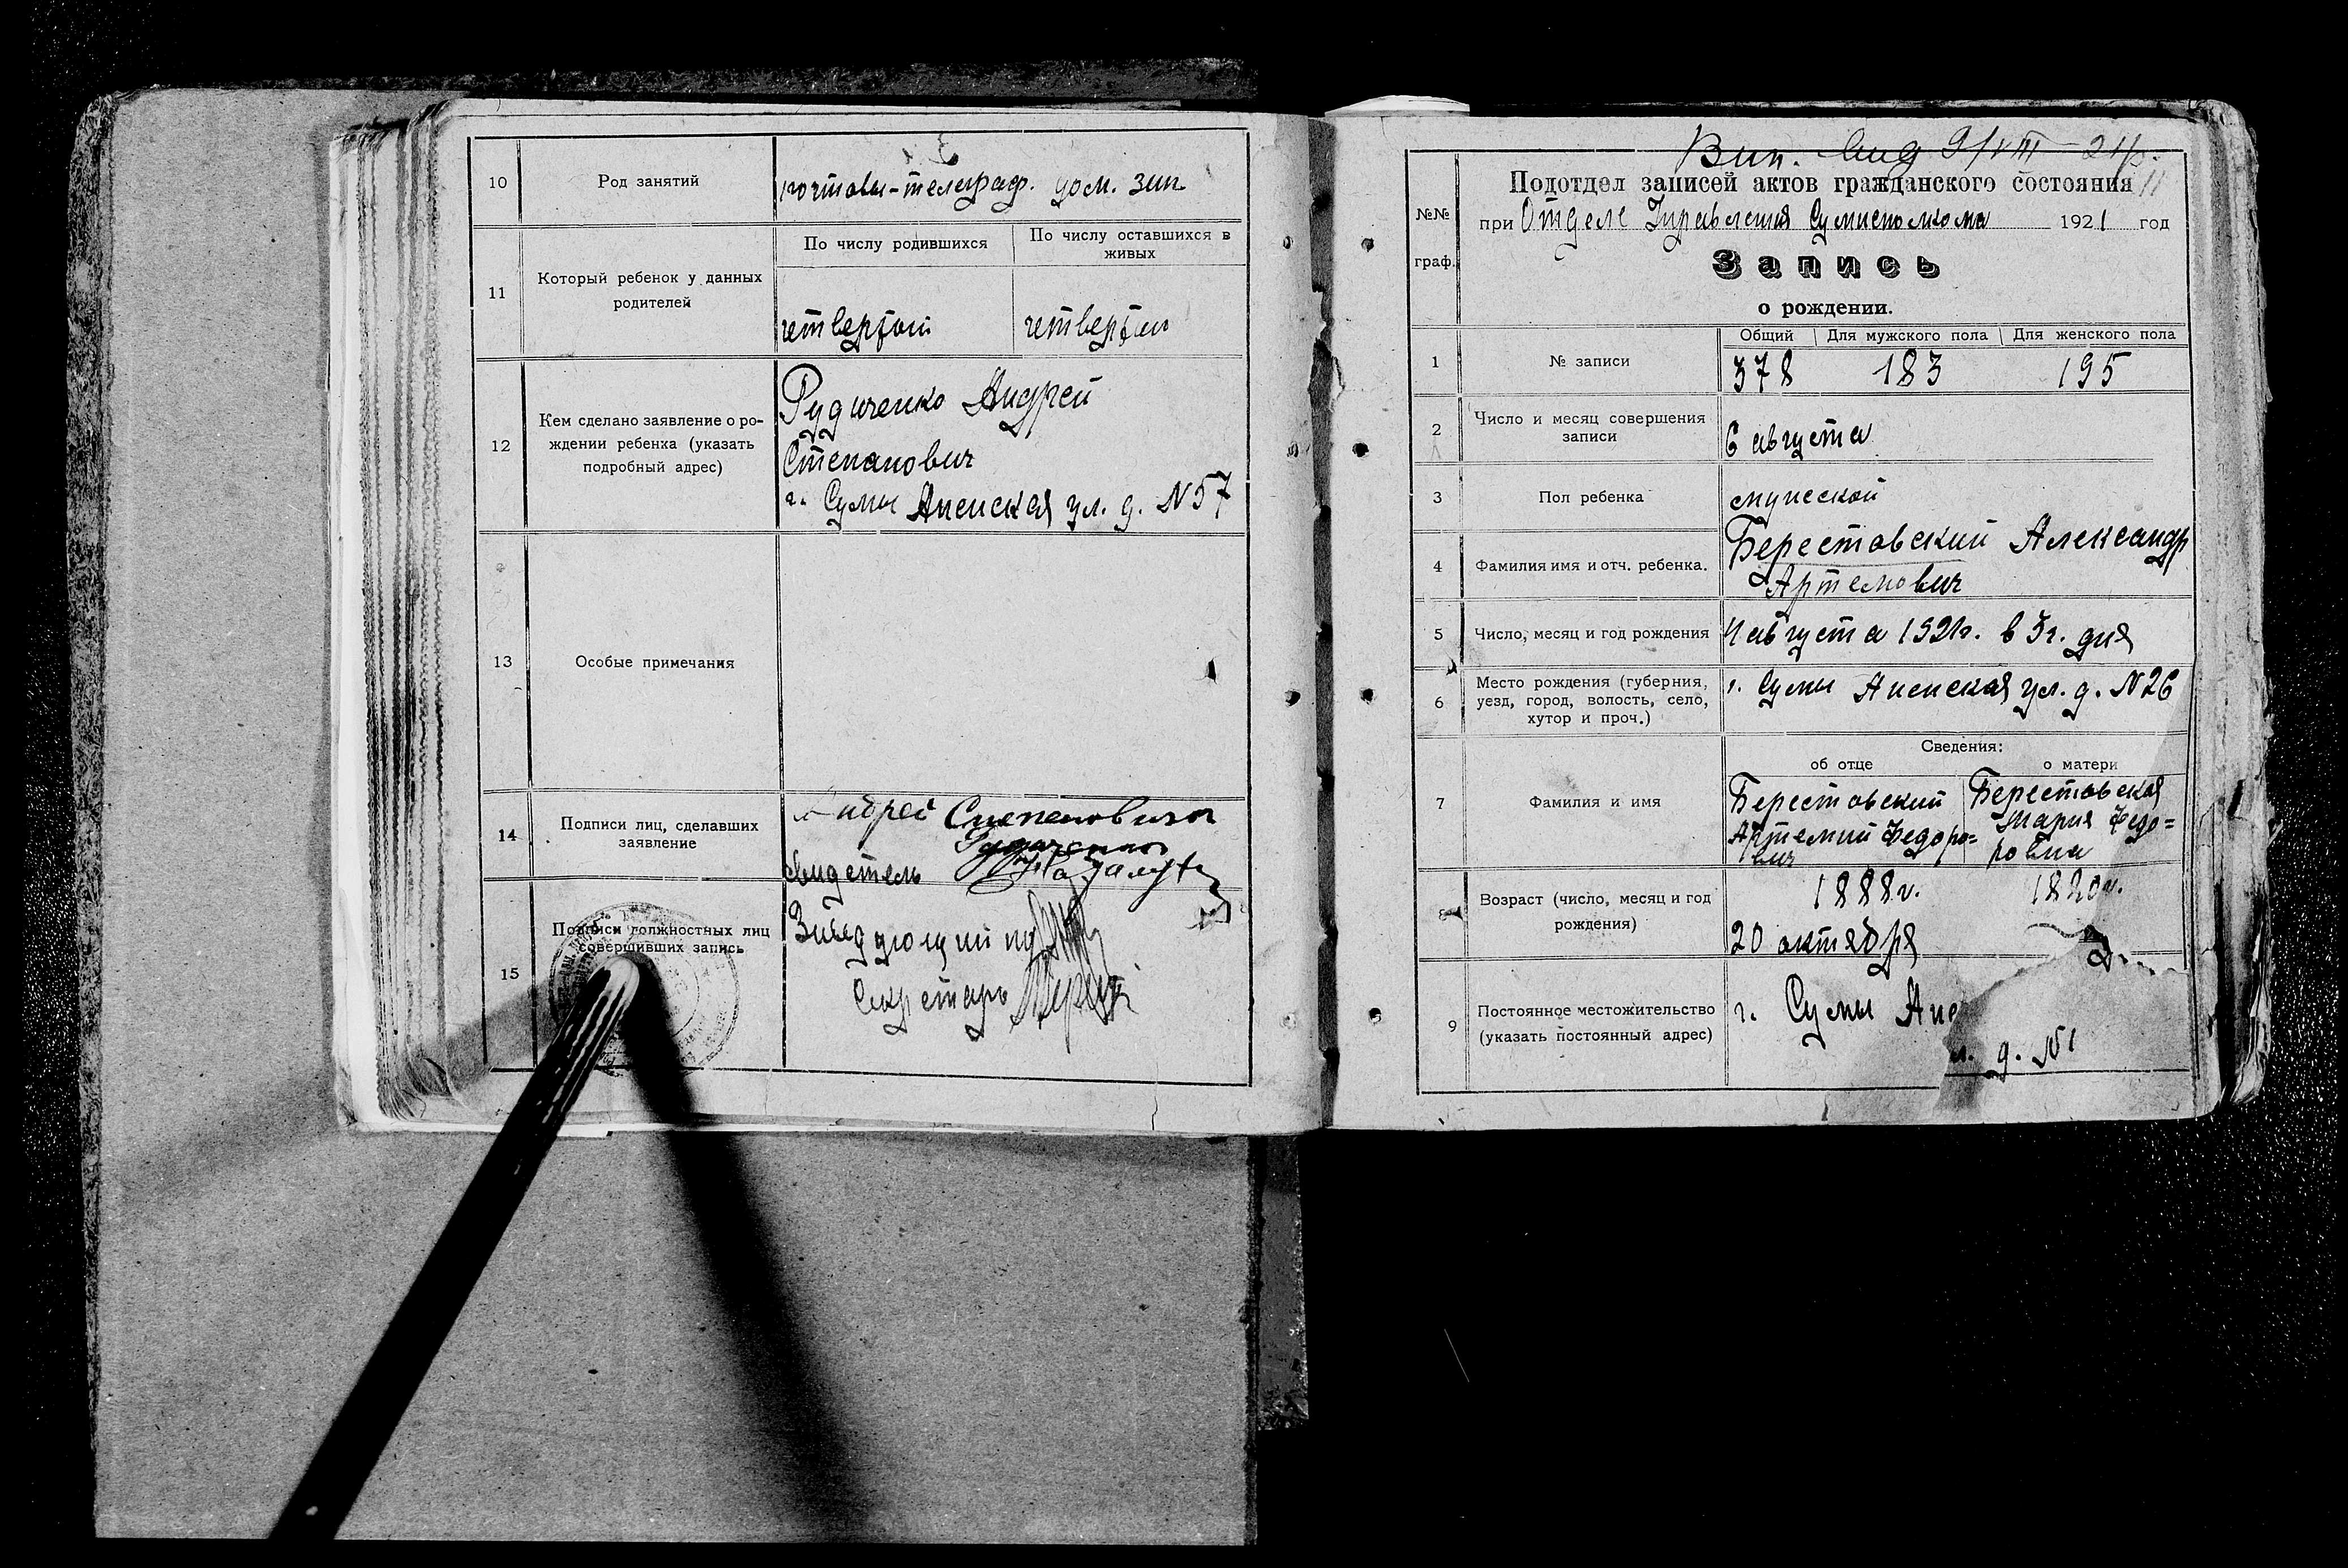 10 Род занятий почтово-телеграф. дом. зан.
11 Который ребенок у данных родителей
По числу родившихся По числу оставшихся в живых
четвертый четвертый
12 Кем сделано заявление о ро-
ждении ребенка (указать
подробный адрес)
Рудиченко Андрей
Степанович
г. Сумы Ул. д. N 57
13 Особые примечания
14 Подписи лиц, сделавших
заявление
Андрей Степанович
свидетель
15 Подписи должностных лиц
совершивших запись
Заведующий
Секретарь
Вып. 9/VIII-21
Подотдел записей актов гражданского состояния
№№
граф.
при Отделе Управления Сумисполкома 1921 год
Запись
о рождении.
Общий Для мужского пола Для женского пола
1 № записи 378 183 195
2 Число и месяц совершения
записи
6 августа
3 Пол ребенка мужской
4 Фамилия имя и отч. ребенка.
Берестовский Александр
Артемович
5 Число, месяц и год рождения 4 августа 1921г. в 3ч. дня
6 Место рождения (губерния,
уезд, город, волость, село,
хутор и проч.)
г. Сумы ул. д. N 26
Сведения:
об отце о матери
7 Фамилия и имя
Берестовский
Артемий Федоро=
вич
Берестовская
Мария Федо=
ровна
8 Возраст (число, месяц и год
рождения)
1888г.
20 октября
9 Постоянное местожительство
(указать постоянный адрес)
г. Сумы
д. N